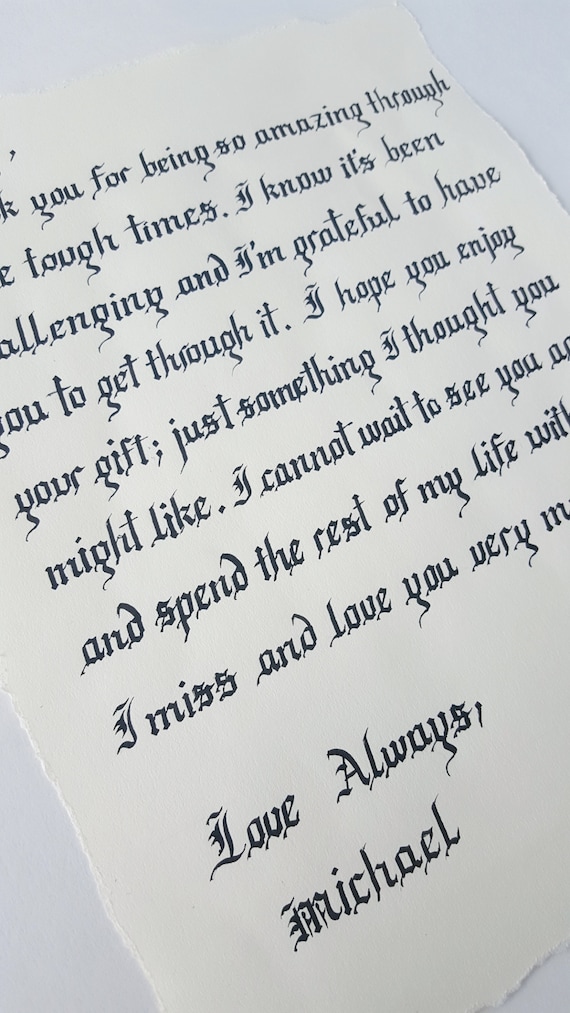 ,
k you for being so amazing through
e tough times. I know it's been
allenging and I'm grateful to have
you to get through it. I hope you enjoy
your gift; just something I thought you
might like. I cannot wait to see you ag
and spend the rest of my life with
I miss and love you very m
Love Always,
Michael